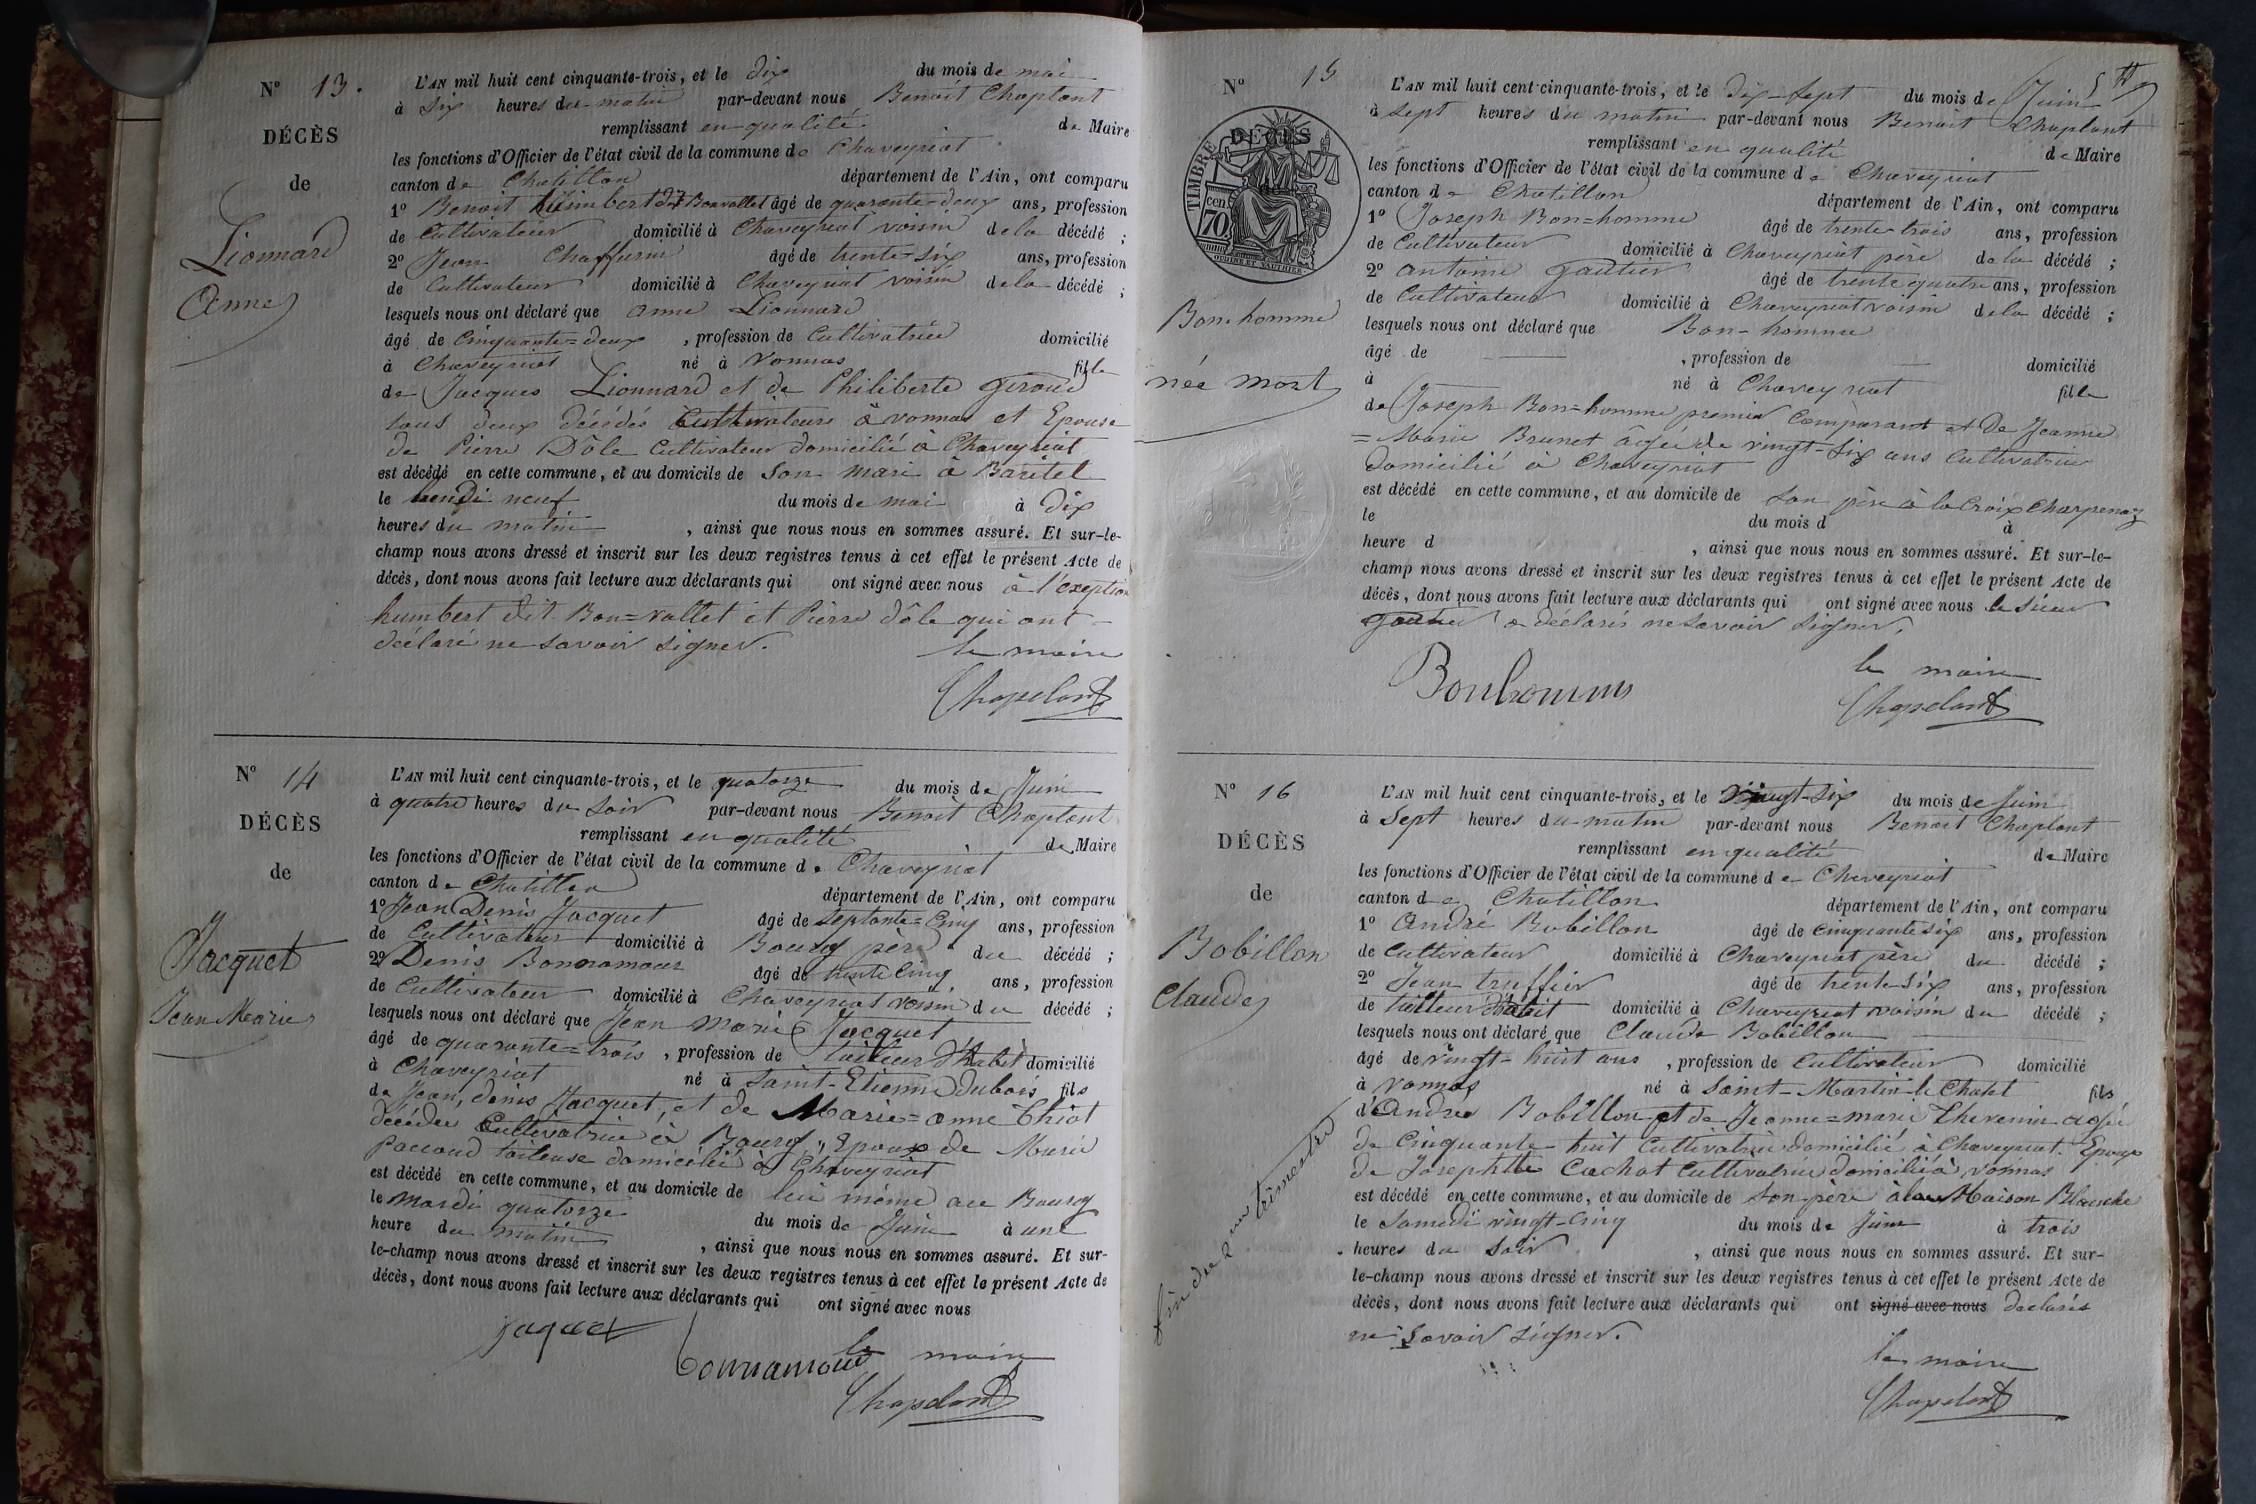 N° 13.
DÉCÈS
de
Lionnard
Anne
L'AN mil huit cent cinquante-trois, et le dix du mois de mai
à six heures du matin par-devant nous Benoit Chaplant
remplissant en qualité de Maire
les fonctions d'Officier de l'état civil de la commune de Chaveyriat
canton de Chatillon département de l'Ain, ont comparu
1° Benoit humbert dt Bonvallet âgé de quarante-deux ans, profession
de Cultivateur domicilié à Chaveyriat voisin de la décédé ;
2° Jean Chaffurin âgé de trente-six ans, profession
de Cultivateur domicilié à Chaveyriat voisin de la décédé ;
lesquels nous ont déclaré que anne Lionnard
âgé de Cinquante=deux , profession de Cultivatrice domicilié
à Chaveyriat né à Vonnas fille
de Jacques Lionnard et de Philiberte giroud
tous deux décédés Cultivateurs à vonnas et Epouse
de Pierre Dôle Cultivateur domicilié à Chaveyriat
est décédé en cette commune, et au domicile de son mari à Baritel
le lundi neuf du mois de mai à dix
heures du matin , ainsi que nous nous en sommes assuré. Et sur-le-
champ nous avons dressé et inscrit sur les deux registres tenus à cet effet le présent Acte de
décès, dont nous avons fait lecture aux déclarants qui ont signé avec nous à l'exeption
humbert dit Bon=vallet et Pierre dôle qui ont
déclaré ne savoir signer.
le maire
Chapelant
N° 14
DÉCÈS
de
Jacquet
Jean Marie
L'AN mil huit cent cinquante-trois, et le quatorze du mois de Juin
à quatre heures du soir par-devant nous Benoit Chaplant
remplissant en qualité de Maire
les fonctions d'Officier de l'état civil de la commune de Chaveyriat
canton de Chatillon département de l'Ain, ont comparu
1° Jean Denis Jacquet âgé de septante=Cinq ans, profession
de Cultivateur domicilié à Bourg père du décédé ;
2° Denis Bonnamour âgé de trente Cinq ans, profession
de Cultivateur domicilié à Chaveyriat voisin du décédé ;
lesquels nous ont déclaré que Jean Marie Jacquet
âgé de quarante=trois , profession de tailleur d'Habit domicilié
à Chaveyriat né à Saint-Etienne Dubois fils
de Jean, denis Jacquet, et de Marie=anne Thiot
décédée Cultivatrice à Bourg, Epoux de Marie
Paccoud tailleuse domicilié à Chaveyriat
est décédé en cette commune, et au domicile de lui même au Bourg
le mardi quatorze du mois de Juin à une
heure du matin , ainsi que nous nous en sommes assuré. Et sur-
le-champ nous avons dressé et inscrit sur les deux registres tenus à cet effet le présent Acte de
décès, dont nous avons fait lecture aux déclarants qui ont signé avec nous
jaquet
bonnamour
le maire
Chapelant
N° 15
DÉCÈS
TIMBRE
cen.
70
OUDINÉ ET VAUTHIER
Bon-homme
née mort
L'AN mil huit cent cinquante-trois, et le dix-sept du mois de Juin
à sept heures du matin par-devant nous Benoit Chaplant
remplissant en qualité de Maire
les fonctions d'Officier de l'état civil de la commune de Chaveyriat
canton de Chatillon département de l'Ain, ont comparu
1° Joseph Bon=homme âgé de trente-trois ans, profession
de Cultivateur domicilié à Chaveyriat père de la décédé ;
2° antoine gautier âgé de trente quatre ans, profession
de Cultivateur domicilié à Chaveyriat voisin de la décédé ;
lesquels nous ont déclaré que Bon-homme
âgé de , profession de domicilié
à né à Chaveyriat fille
de Joseph Bon=homme premier Comparant et De Jeanne
=Marie Brunet âgée de vingt-six ans Cultivatrice
domicilié à Chaveyriat
est décédé en cette commune, et au domicile de son père à la Croix Charpenay
le du mois d à
heure d , ainsi que nous nous en sommes assuré. Et sur-le-
champ nous avons dressé et inscrit sur les deux registres tenus à cet effet le présent Acte de
décès, dont nous avons fait lecture aux déclarants qui ont signé avec nous le sieur
gautier a déclaré ne savoir signer.
Bonhomme
le maire
Chapelant
N° 16
DÉCÈS
de
Bobillon
Claude
fin du 2 me trimestre
L'AN mil huit cent cinquante-trois, et le vingt-six du mois de Juin
à Sept heures du matin par-devant nous Benoit Chaplant
remplissant en qualité de Maire
les fonctions d'Officier de l'état civil de la commune de Chaveyriat
canton de Chatillon département de l'Ain, ont comparu
1° André Bobillon âgé de cinquante six ans, profession
de Cultivateur domicilié à Chaveyriat père du décédé ;
2° Jean truffier âgé de trente-six ans, profession
de tailleur d'habit domicilié à Chaveyriat voisin du décédé ;
lesquels nous ont déclaré que Claude Bobillon
âgé de vingt-huit ans , profession de Cultivateur domicilié
à vonnas né à Saint-Martin-le Chatel fils
d'André Bobillon et de Jeanne=marie Thevenin agée
de Cinquante huit Cultivatrice domicilié à Chaveyriat. Epoux
de Josephtte Cachat Cultivatrice domicilié à vonnas
est décédé en cette commune, et au domicile de son père à la Maison Blanche
le Samedi vingt-Cinq du mois de Juin à trois
heures du soir , ainsi que nous nous en sommes assuré. Et sur-
le-champ nous avons dressé et inscrit sur les deux registres tenus à cet effet le présent Acte de
décès, dont nous avons fait lecture aux déclarants qui ont signé avec nous declarés
ne savoir signer.
le maire
Chapelant